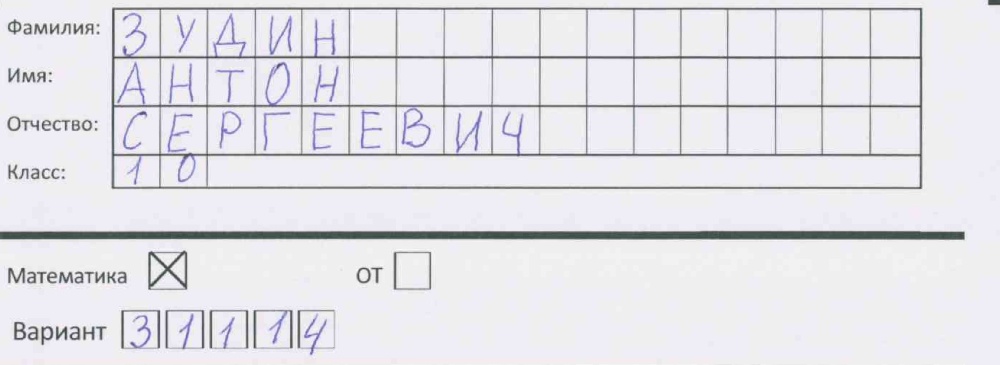 Фамилия: ЗУДИН
Имя: АНТОН
Отчество: СЕРГЕЕВИЧ
Класс: 10
Математика ☒ ОТ ☐
Вариант 31114